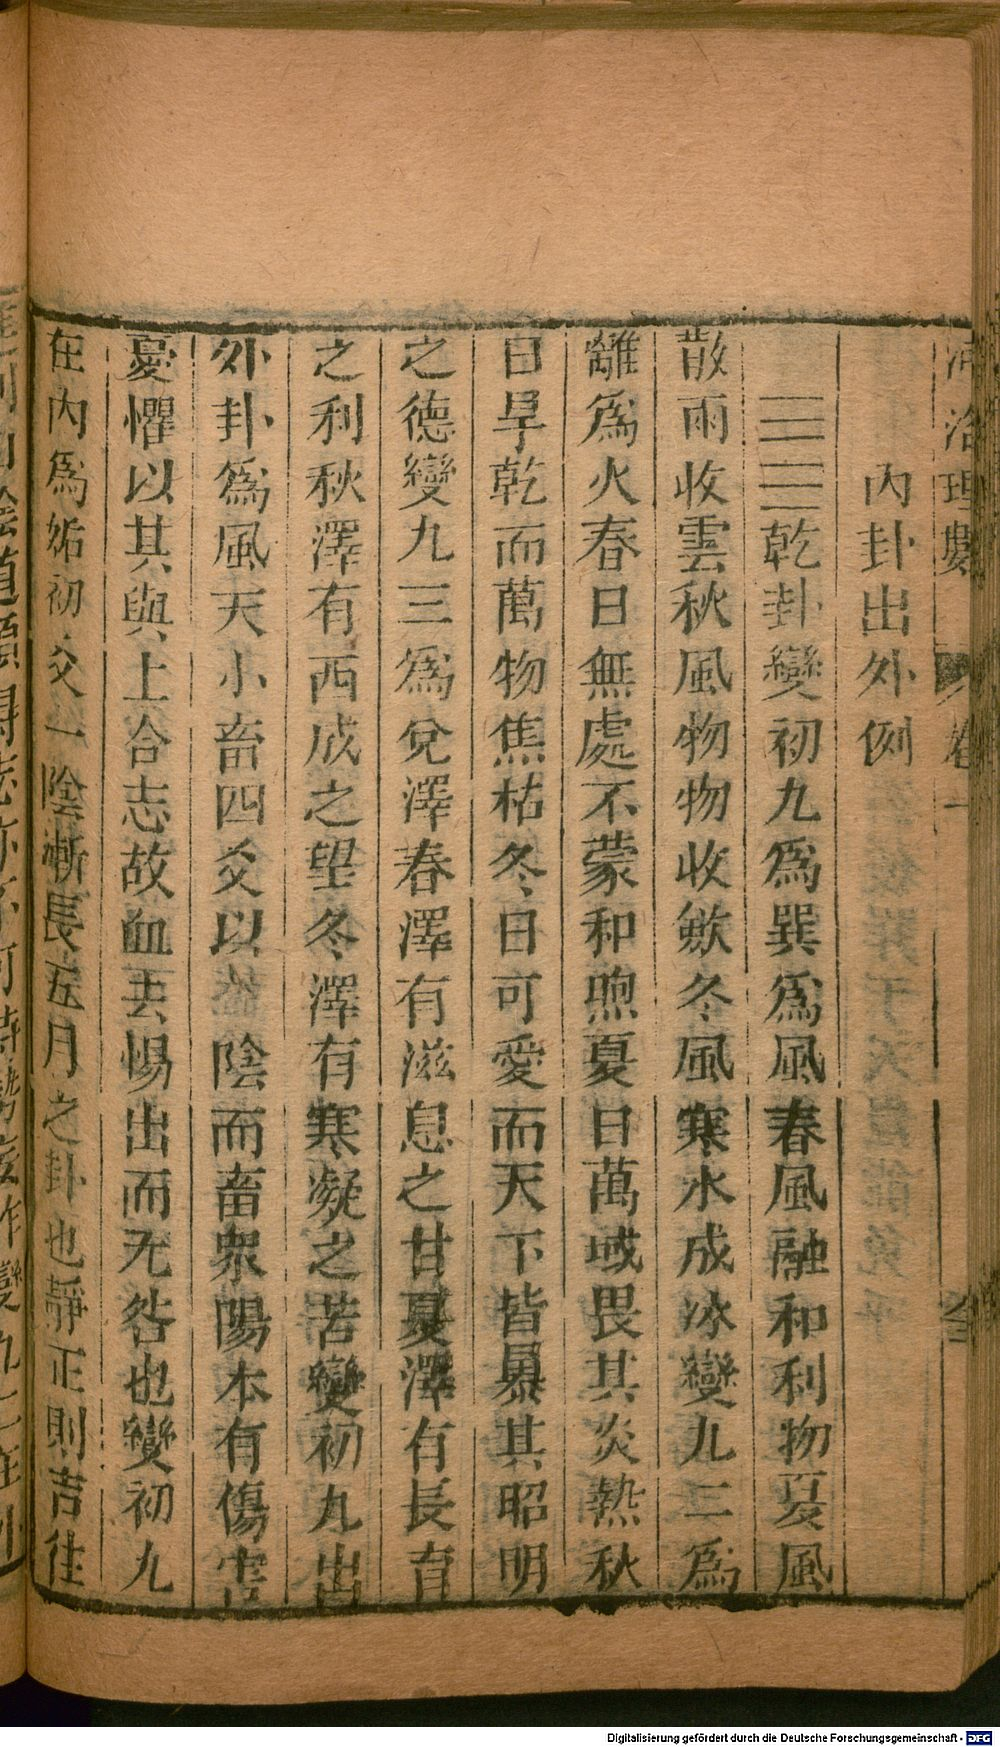 內卦出外例
☰☰乾卦變初九爲巽爲風春風融和利物夏風
散雨收雲秋風物物收歛冬風寒水成冰變九二爲
離爲火春日無處不蒙和煦夏日萬域畏其炎熱秋
日旱乾而萬物焦枯冬日可愛而天下皆暴其昭明
之德變九三爲兌澤春澤有滋息之甘夏澤有長育
之利秋澤有西成之望冬澤有寒凝之苦變初九出
外卦爲風天小畜四爻以陰而畜衆陽本有傷害
憂懼以其與上合志故血去惕出而无咎也變初九
在內爲姤初爻一陰漸長五月之卦也靜正則吉往
理數
卷一
Digitalisierung gefördert durch die Deutsche Forschungsgemeinschaft - DFG